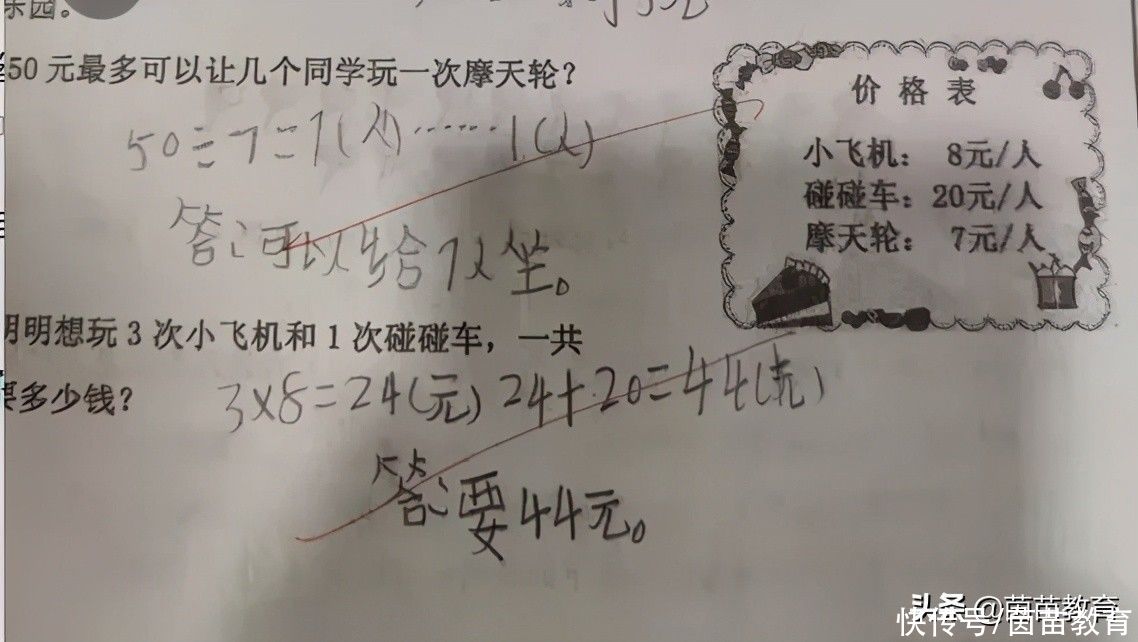 乐园。
50 元最多可以让几个同学玩一次摩天轮?
50÷7=7(人)……1(人)
答:可以给7人坐。
价 格 表
小飞机: 8元/人
碰碰车: 20元/人
摩天轮: 7元/人
明明想玩 3 次小飞机和 1 次碰碰车, 一共
要多少钱?
3×8=24(元) 24+20=44(元)
答:要44元。
头条 @茵苗教育
快传号/茵苗教育